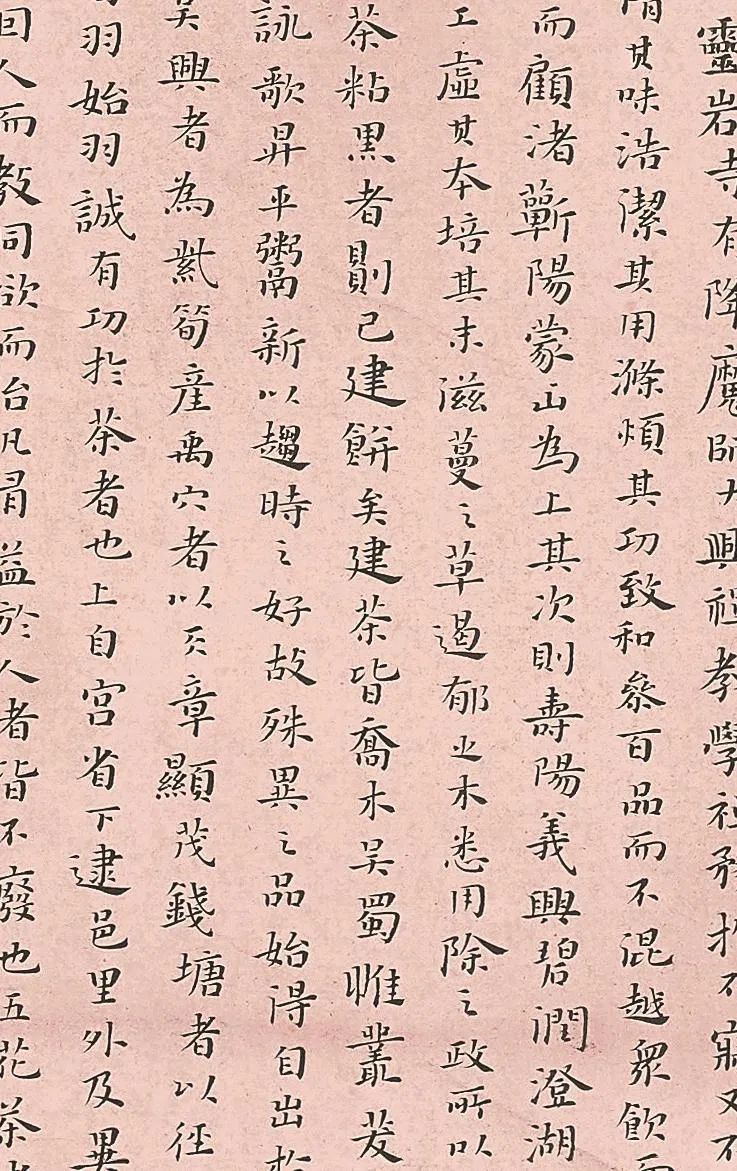 靈岩寺有降魔師大興禪教學禪務於不寐又不
其味浩潔其用滌煩其功致和參百品而不混越眾飲而
而顧渚蘄陽蒙山為上其次則壽陽義興碧澗澄湖
工虛其本培其末滋蔓之草遏郁之木悉用除之政所以
茶粘黑者則已建餅矣建茶皆喬木吴蜀惟叢茇
詠歌昇平粥新以趨時之好故殊異之品始得自出於
吴興者為紫筍產禹穴者以天章顯茂錢塘者以徑
羽始羽誠有功於茶者也上自宮省下逮邑里外及異
回人而教同欲而治凡有益於人者皆不廢也五花茶者